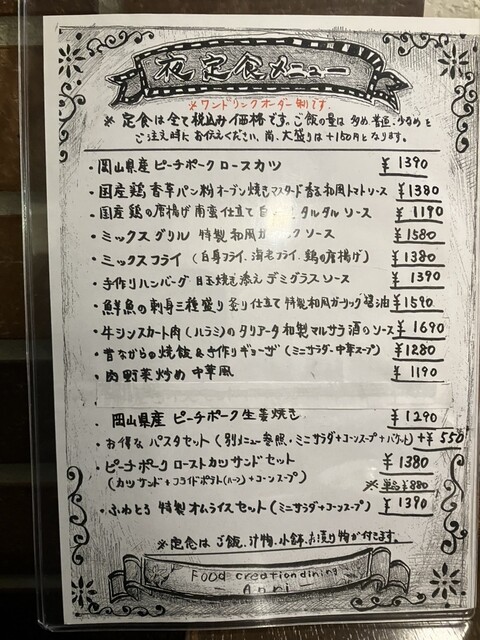 夜定食メニュー
※ワンドリンクオーダー制です。
※定食は全て税込み価格です。ご飯の量は多め、普通、少なめと
ご注文時にお伝えください。尚、大盛りは+150円となります。
・岡山県産ピーチポークロースカツ ¥1390
・国産鶏香草パン粉オーブン焼きマスタード香る和風トマトソース ¥1380
・国産鶏の唐揚げ南蛮仕立て タルタルソース ¥1190
・ミックスグリル 特製和風ガーリックソース ¥1580
・ミックスフライ (白身フライ、海老フライ、鶏の唐揚げ) ¥1380
・手作りハンバーグ 目玉焼き添え デミグラスソース ¥1390
・鮮魚の刺身三種盛り 炙り仕立て 特製和風ガーリック醤油 ¥1590
・牛シンスカート肉(ハラミ)のタリアータ 和製マルサラ酒のソース ¥1690
・昔ながらの焼飯&手作りギョーザ(ミニサラダー中華スープ) ¥1280
・肉野菜炒め 中華風 ¥1190
岡山県産 ピーチポーク生姜焼き ¥1290
・お得なパスタセット(別メニュー参照・ミニサラダ+コーンスープ+バゲット) +¥550
・ピーチポークローストカツサンドセット ¥1380
(カツサンド+フライドポテト(ハーフ)+コーンスープ) ※単品¥880
・ふわとろ 特製オムライスセット(ミニサラダ+コーンスープ) ¥1390
※定食は、ご飯、汁物、小鉢、お漬け物が付きます。
Food creation dining
Anri